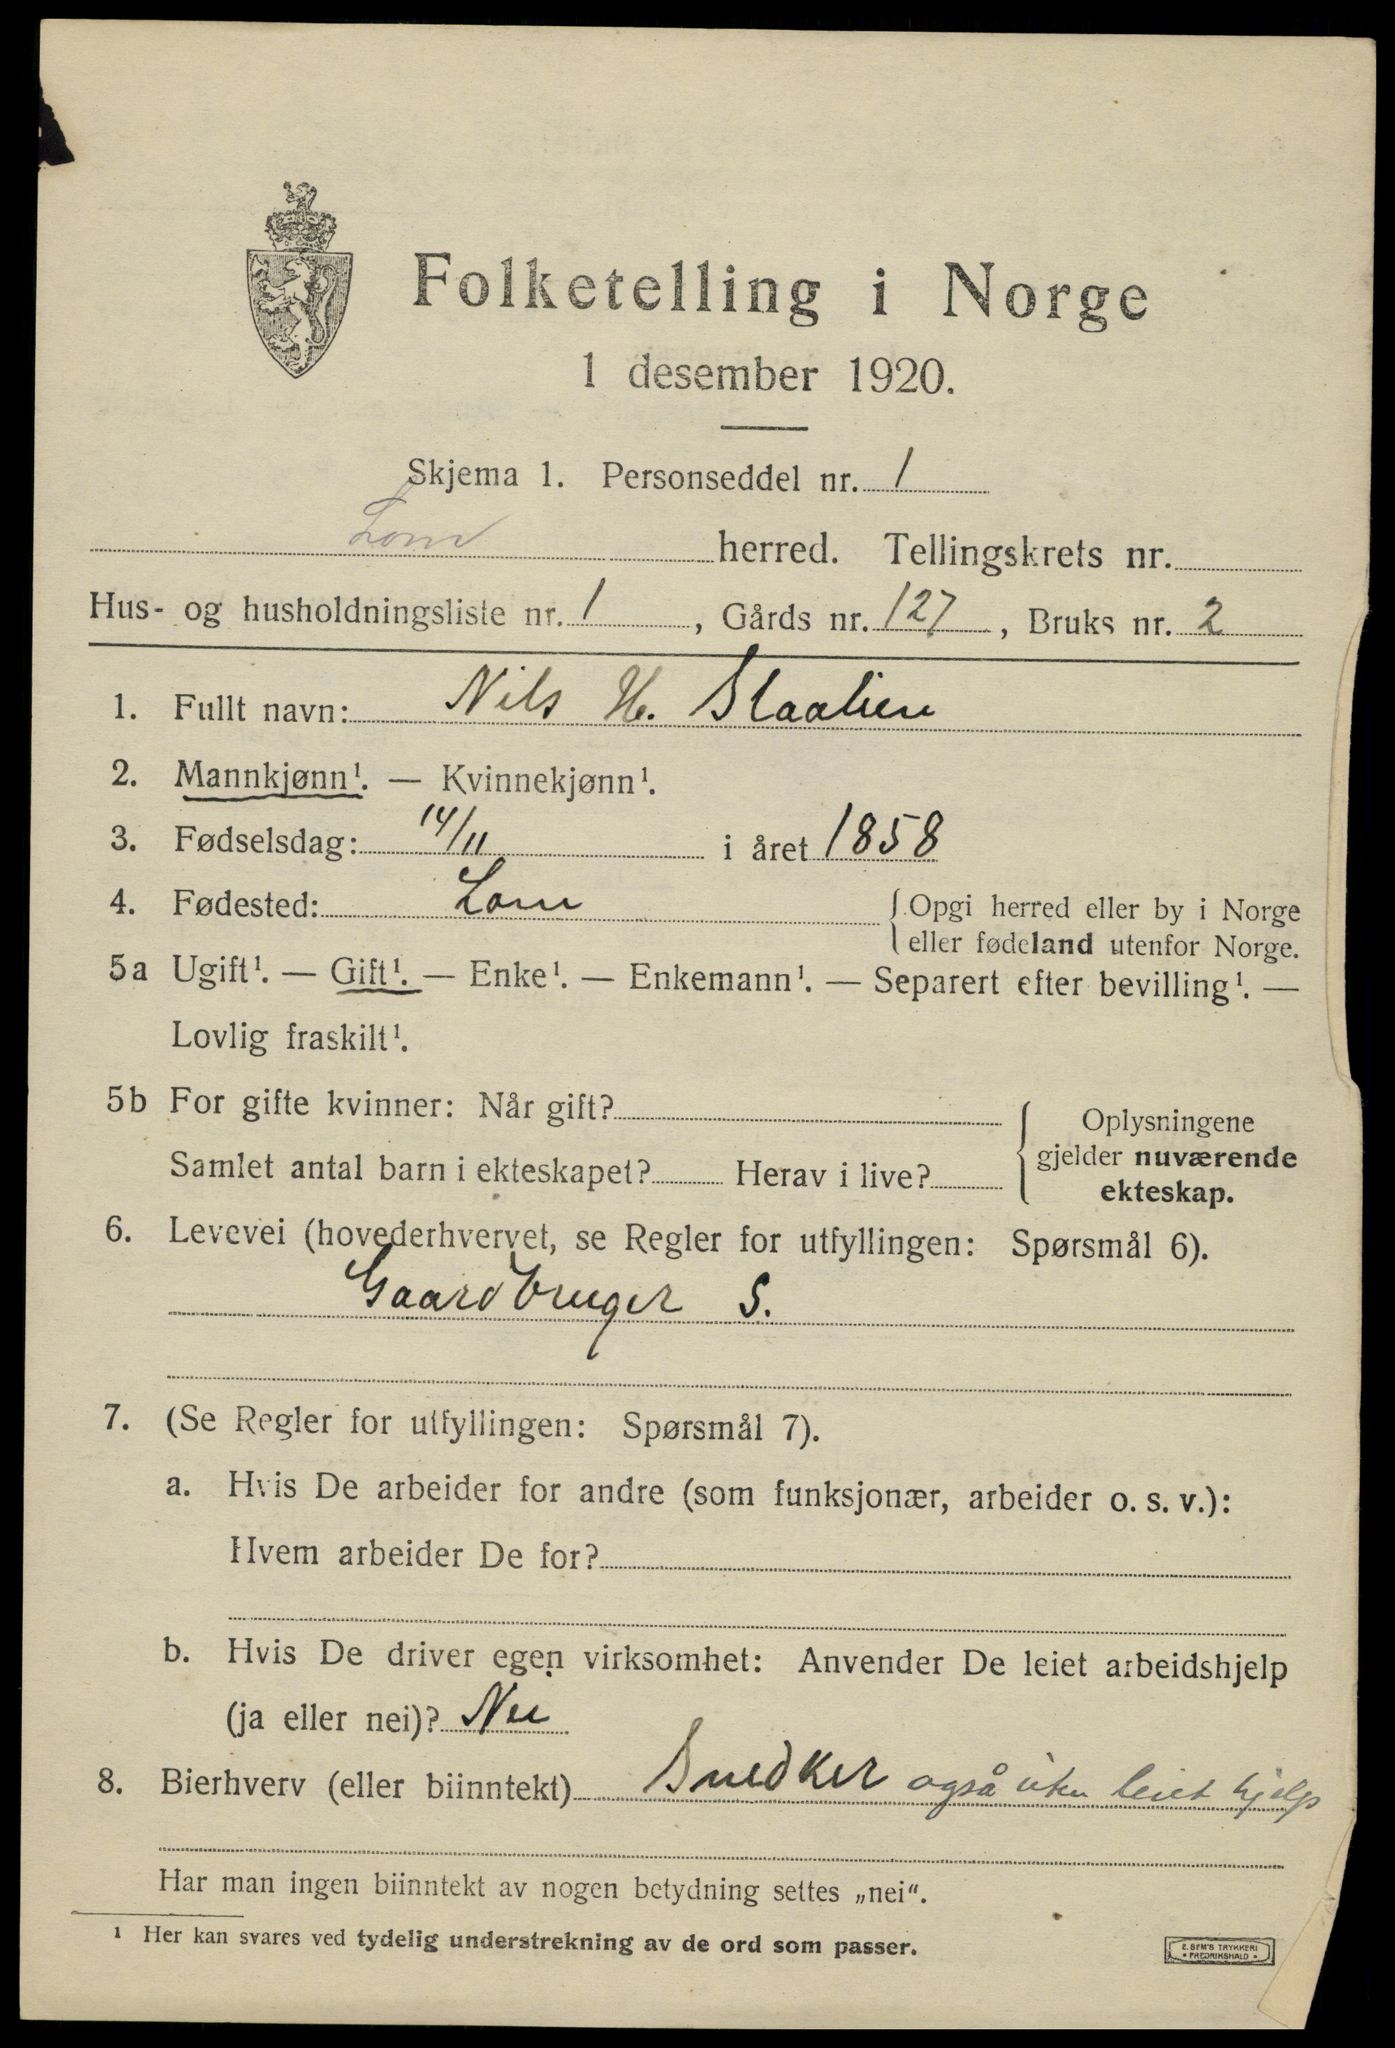 Folketelling i Norge
1 desember 1920.
Skjema 1. Personseddel nr. 1
Lom herred. Tellingskrets nr.
Hus- og husholdningsliste nr. 1, Gårds nr. 127, Bruks nr. 2
1. Fullt navn: Nils H. Staalien
2. Mannkjønn¹. — Kvinnekjønn¹.
3. Fødselsdag: 14/11 i året 1858
4. Fødested: Lom {Opgi herred eller by i Norge
eller fødeland utenfor Norge.
5a Ugift¹. — Gift¹. — Enke¹. — Enkemann¹. — Separert efter bevilling¹. —
Lovlig fraskilt¹.
5b For gifte kvinner: Når gift?
Samlet antal barn i ekteskapet? Herav i live?
{Oplysningene
gjelder nuværende
ekteskap.
6. Levevei (hovederhvervet, se Regler for utfyllingen: Spørsmål 6).
Gaardbruger S.
7. (Se Regler for utfyllingen: Spørsmål 7).
a. Hvis De arbeider for andre (som funksjonær, arbeider o. s. v.):
Hvem arbeider De for?
b. Hvis De driver egen virksomhet: Anvender De leiet arbeidshjelp
(ja eller nei)? Nei
8. Bierhverv (eller biinntekt) Snedker også uten leiet hjelp
Har man ingen biinntekt av nogen betydning settes „nei“.
¹ Her kan svares ved tydelig understrekning av de ord som passer.
E. SEM'S TRYKKERI
• FREDRIKSHALD •